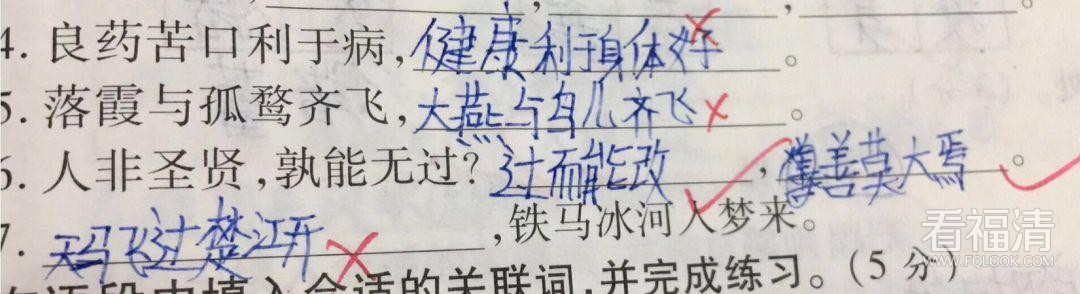 4. 良药苦口利于病,健康利于身体好。
5. 落霞与孤鹜齐飞,大燕与鸟儿齐飞。
6. 人非圣贤,孰能无过?过而能改,善莫大焉。
7. 天马飞过楚江开,铁马冰河入梦来。
合适的关联词,并完成练习。(5分)
看福清
WWW.FQLOOK.COM